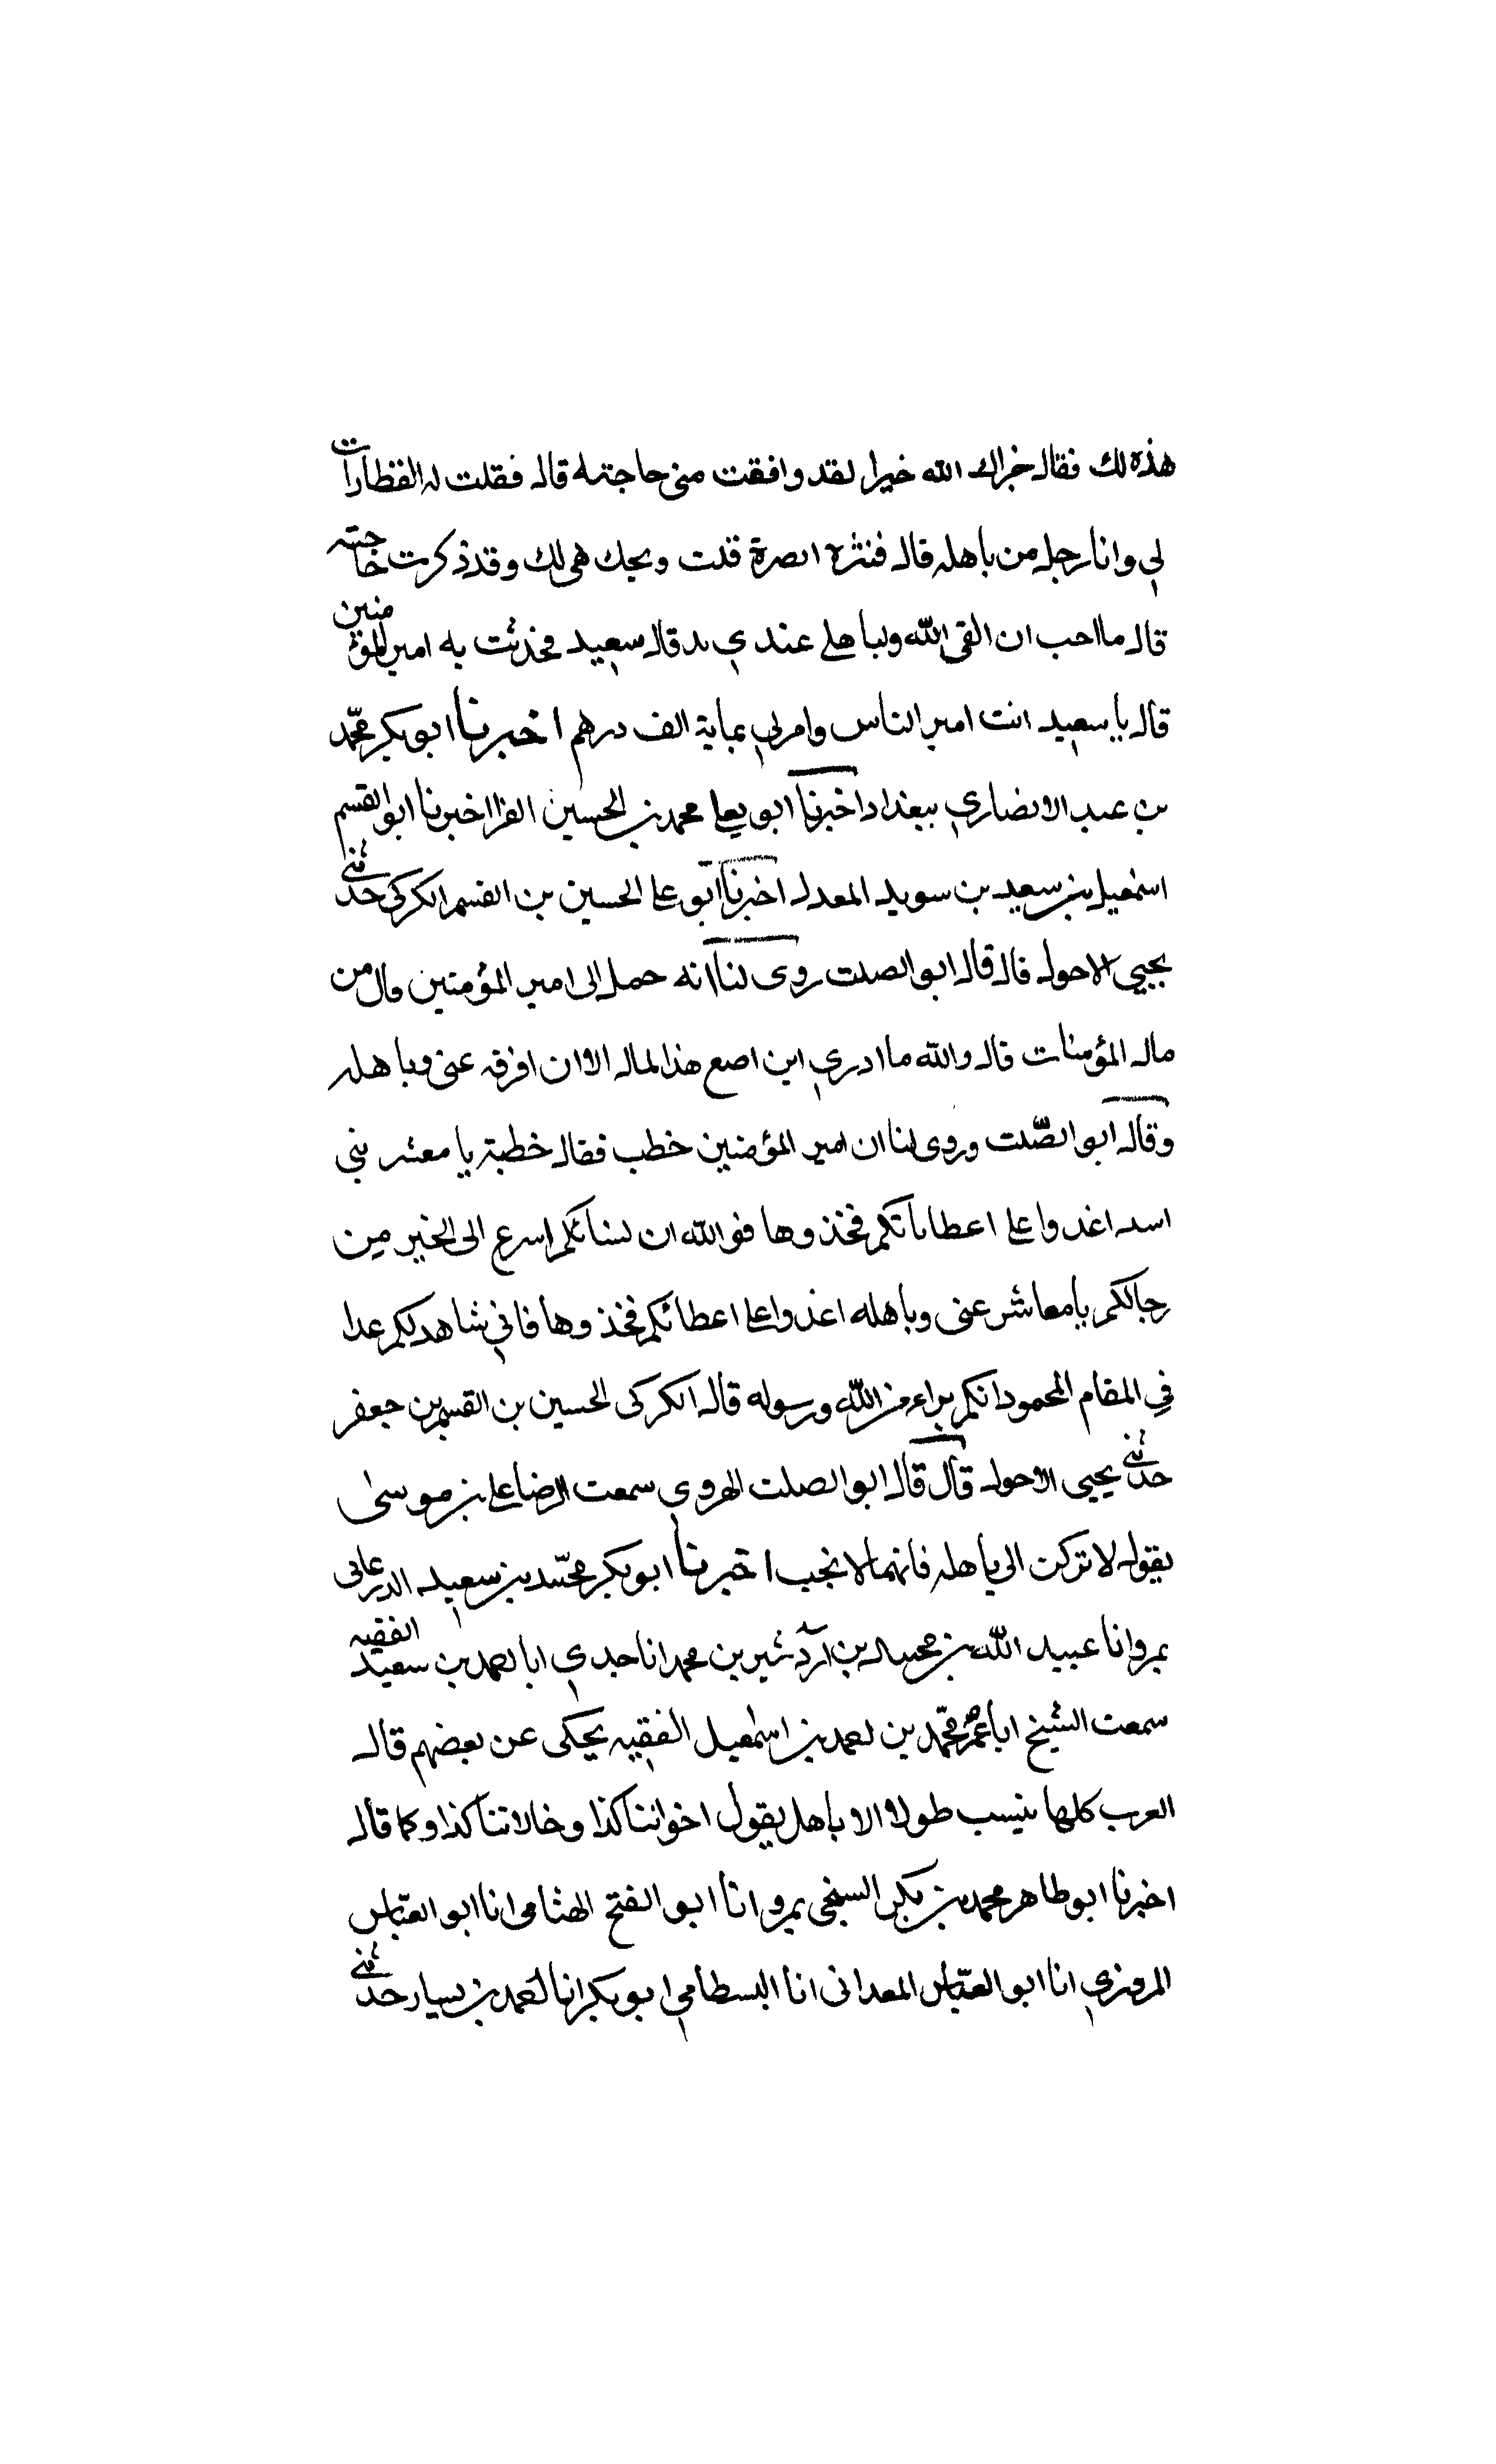 هذه لك فقال جزاك الله خيرا لقد وافقت مني حاجته قال فقلت له القطارات
لي وانا رجل من باهله قال فنثره الصرة قلت ويحك هي لك وقد ذكرت حاجته
قال ما احب ان القى الله ولباهلي عندي يد قال سعيد فحدثت به امير المؤمنين
قال يا سعيد انت امير الناس وامر لي بماية الف درهم اخبرنا ابو بكر محمد
بن عبد الانصاري ببغداد اخبرنا ابو يعلى محمد بن الحسين الفرا اخبرنا ابو القسم
اسمعيل بن سعيد بن سويد المعدل اخبرنا ابو على الحسين بن القسم الكركى حدثني
يحيي الاحول قال قال ابو الصلت روى لنا انه حمل الى امير المؤمنين مال من
مال المؤمنات قال والله ما ادري اين اصع هذا المال الا ان افرقه غنى وباهله
وقال ابو الصلت وروى لنا ان امير المؤمنين خطب فقال خطبة يا معشر بني
اسد اغدوا على اعطاياتكم فخذوها فوالله ان لنسائكم اسرع الى الخير من
رجالكم يا معاشر غنى وباهله اغدوا على اعطائكم فخذوها فاني شاهد لكم غدا
في المقام المحمود انكم براء من الله ورسوله قال الكركى الحسين بن القسم بن جعفر
حدثني يحيى الاحول قال قال ابو الصلت الهروي سمعت الرضا علي بن موسى
يقول لا تركن الى باهله فانهما لا نجب اخبرنا ابو بكر محمد بن سعيد الدرعانى
بمرو انا عبيد الله بن محمد بن اردشير بن محمد انا جدي ابا احمد بن سعيد الفقيه
سمعت الشيخ ابا عمر محمد بن احمد بن اسمعيل الفقيه يحكى عن بعضهم قال
العرب كلها ينسب طولا الا باهل يقول اخواننا كذا وخالاتنا كذا وكما قال
اخبرنا ابو طاهر محمد بن بكر السنجى بمرو انا ابو الفتح الهشامى انا ابو العباس
المروزي انا ابو العباس المعدانى انا البسطامي ابو بكر انا احمد بن يسار حدثني